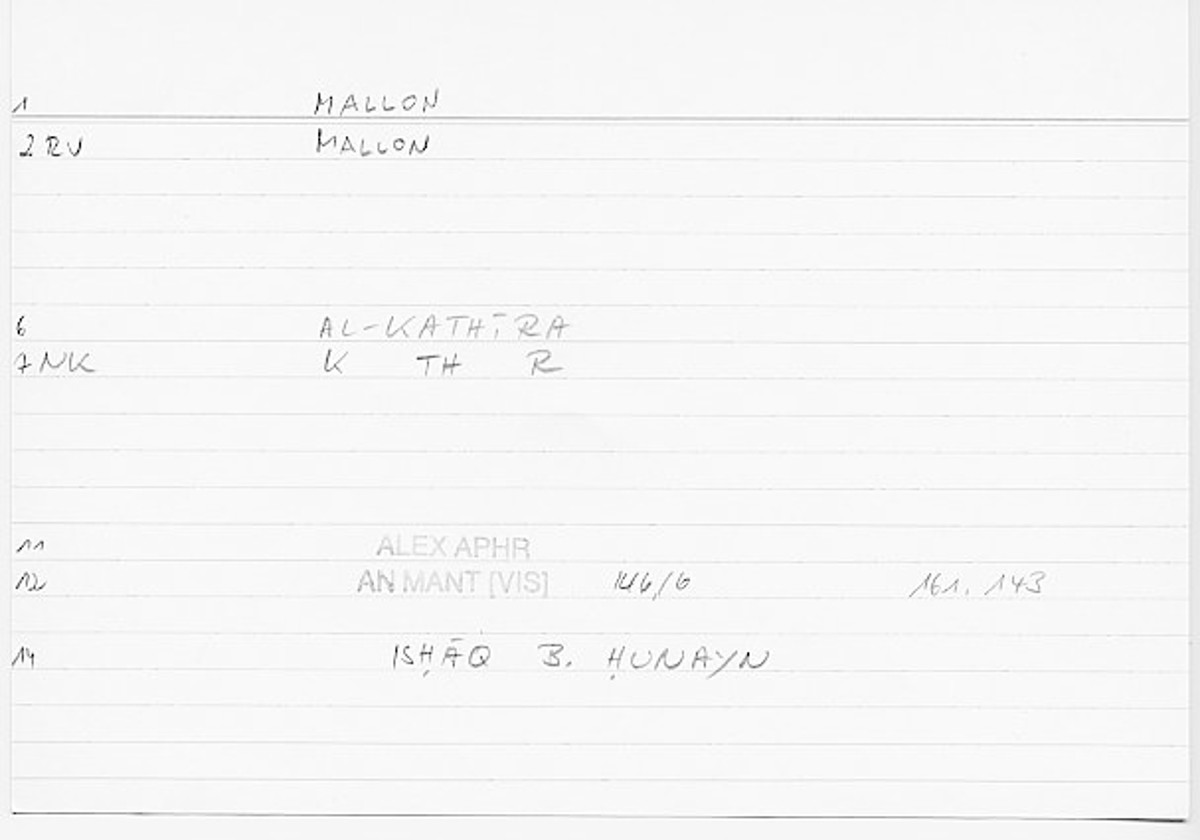 1 MALLON
2 RV MALLON
6 AL-KATHĪRA
7 NK K TH R
11 ALEX APHR
12 AN MANT [VIS] 146/6 161. 143
14 ISḤĀQ B. ḤUNAYN